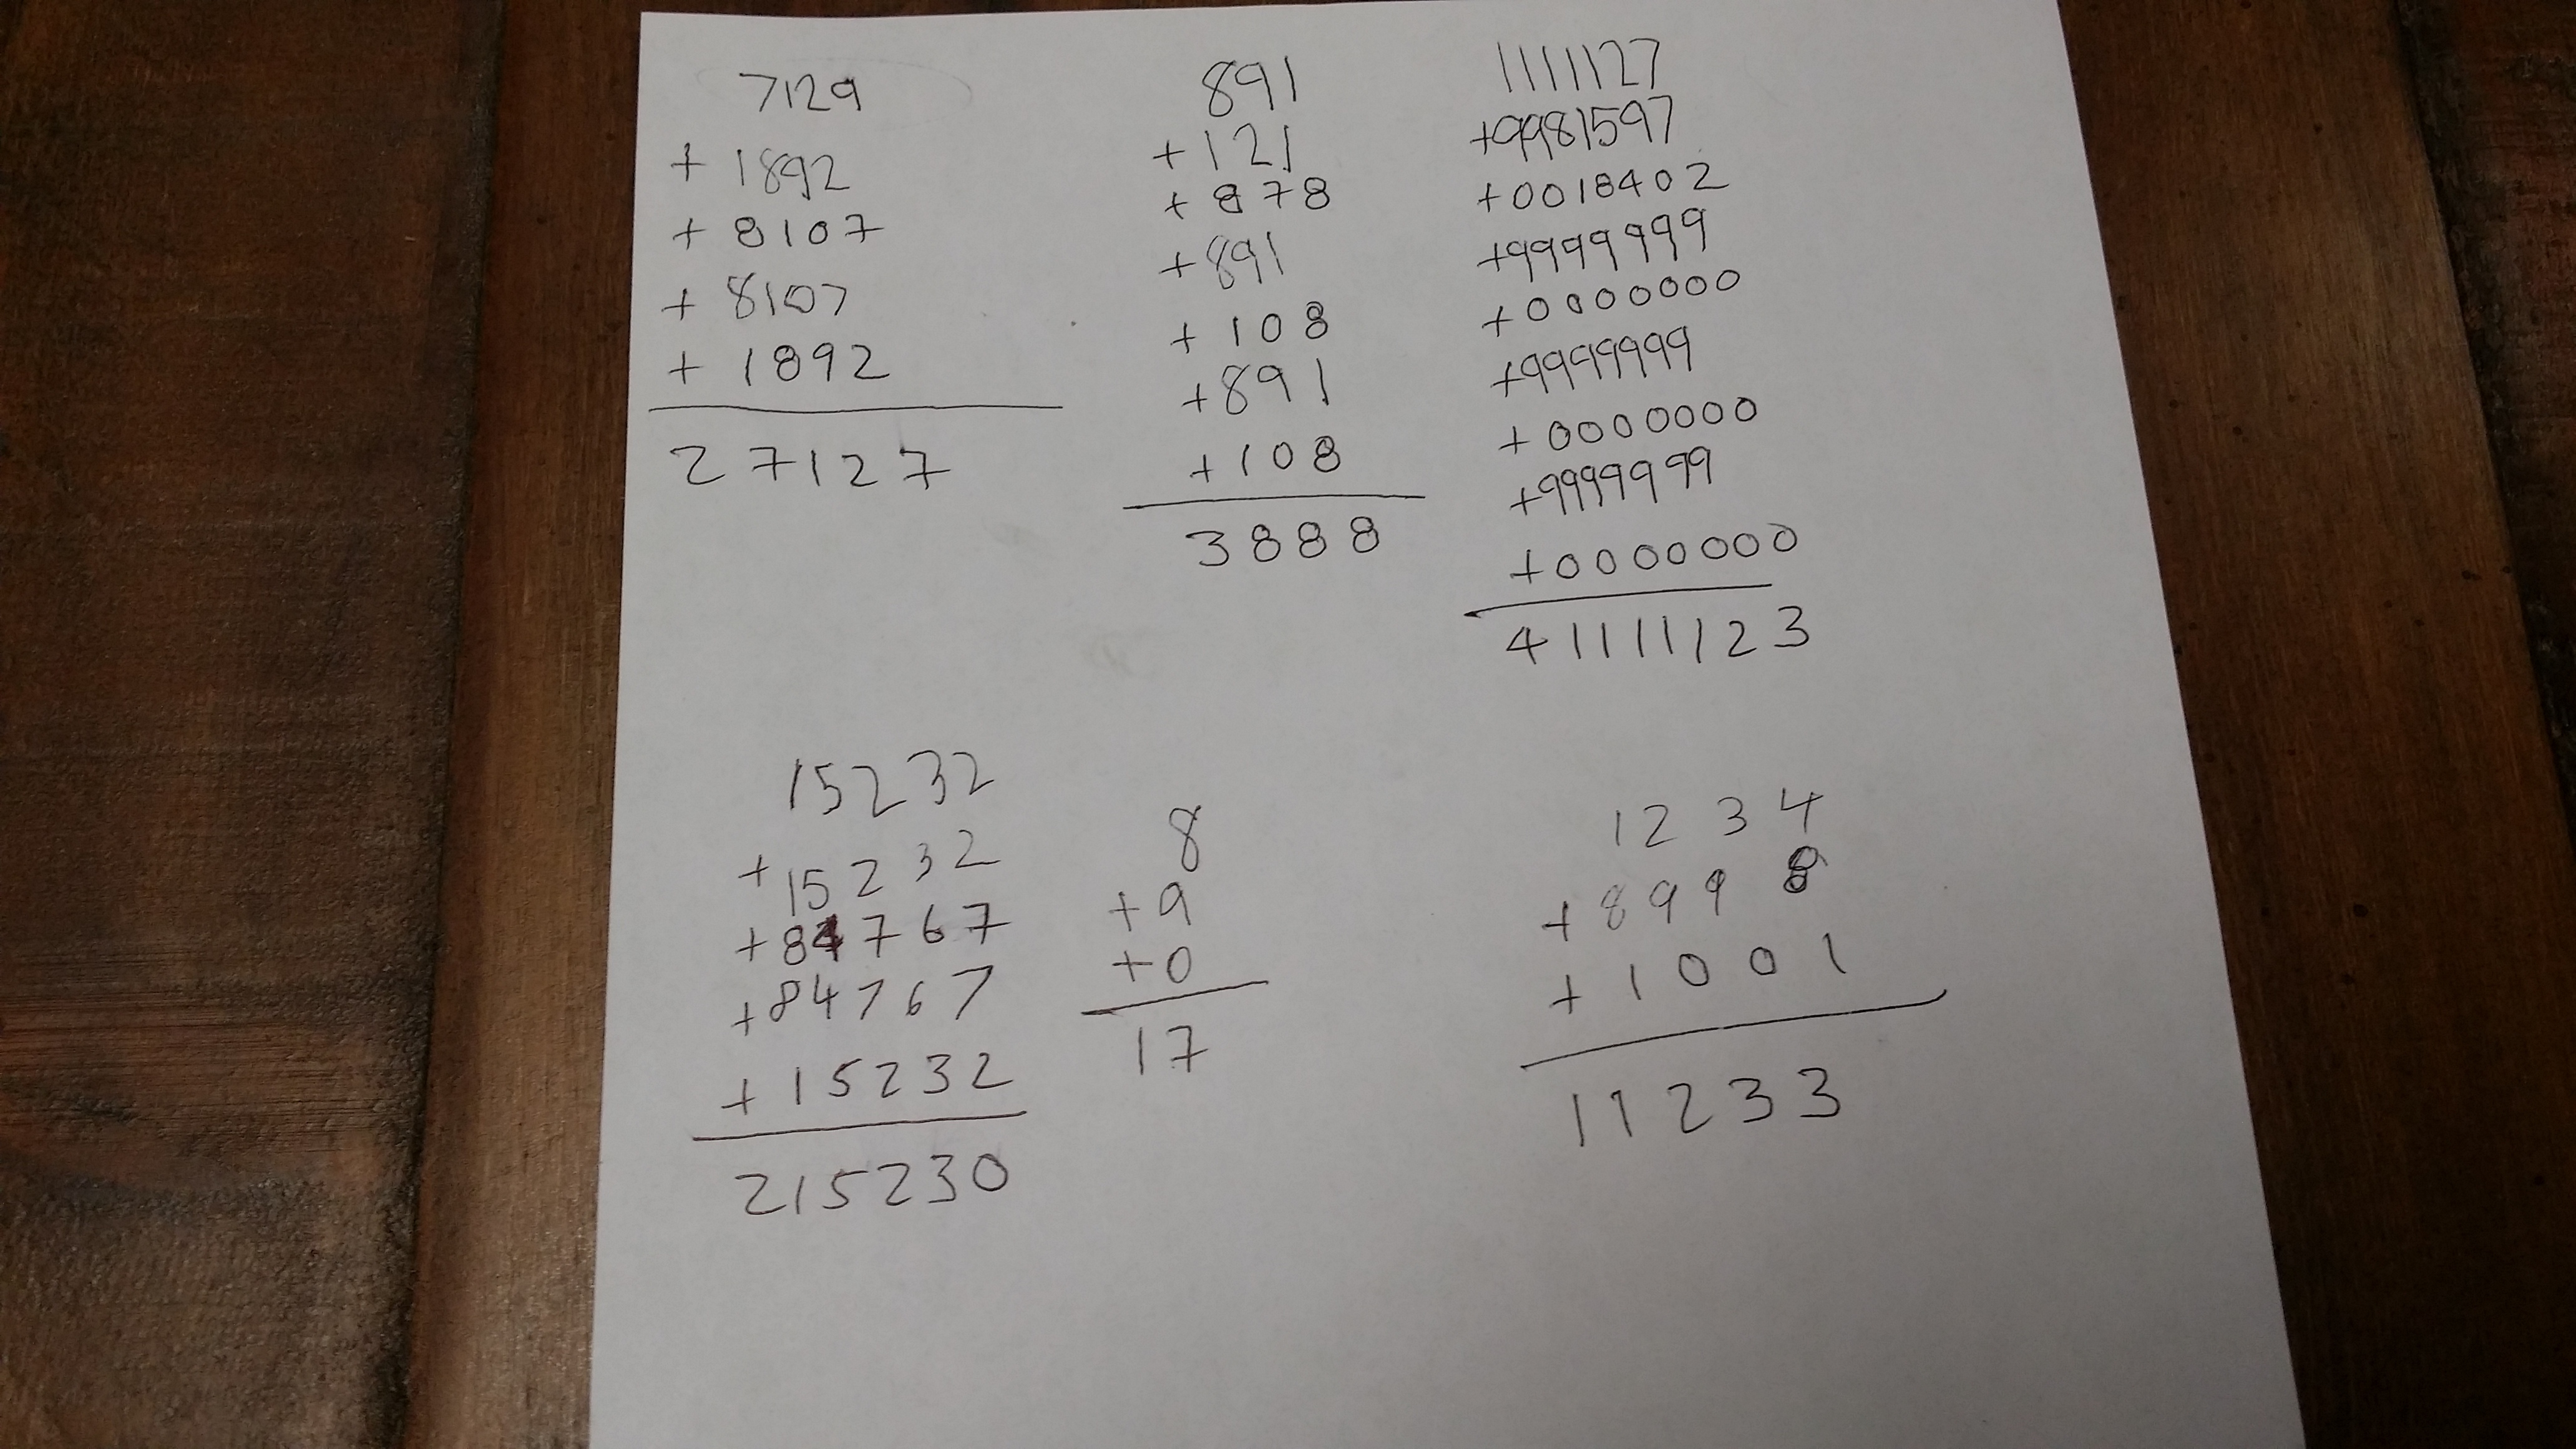 7129
+ 1892
+ 8107
+ 8107
+ 1892
27127
891
+121
+878
+891
+108
+891
+108
3888
1111127
+9981597
+0018402
+9999999
+0000000
+9999999
+0000000
+9999999
+0000000
41111123
15232
+15232
+84767
+84767
+15232
215230
8
+9
+0
17
1234
+8998
+1001
11233